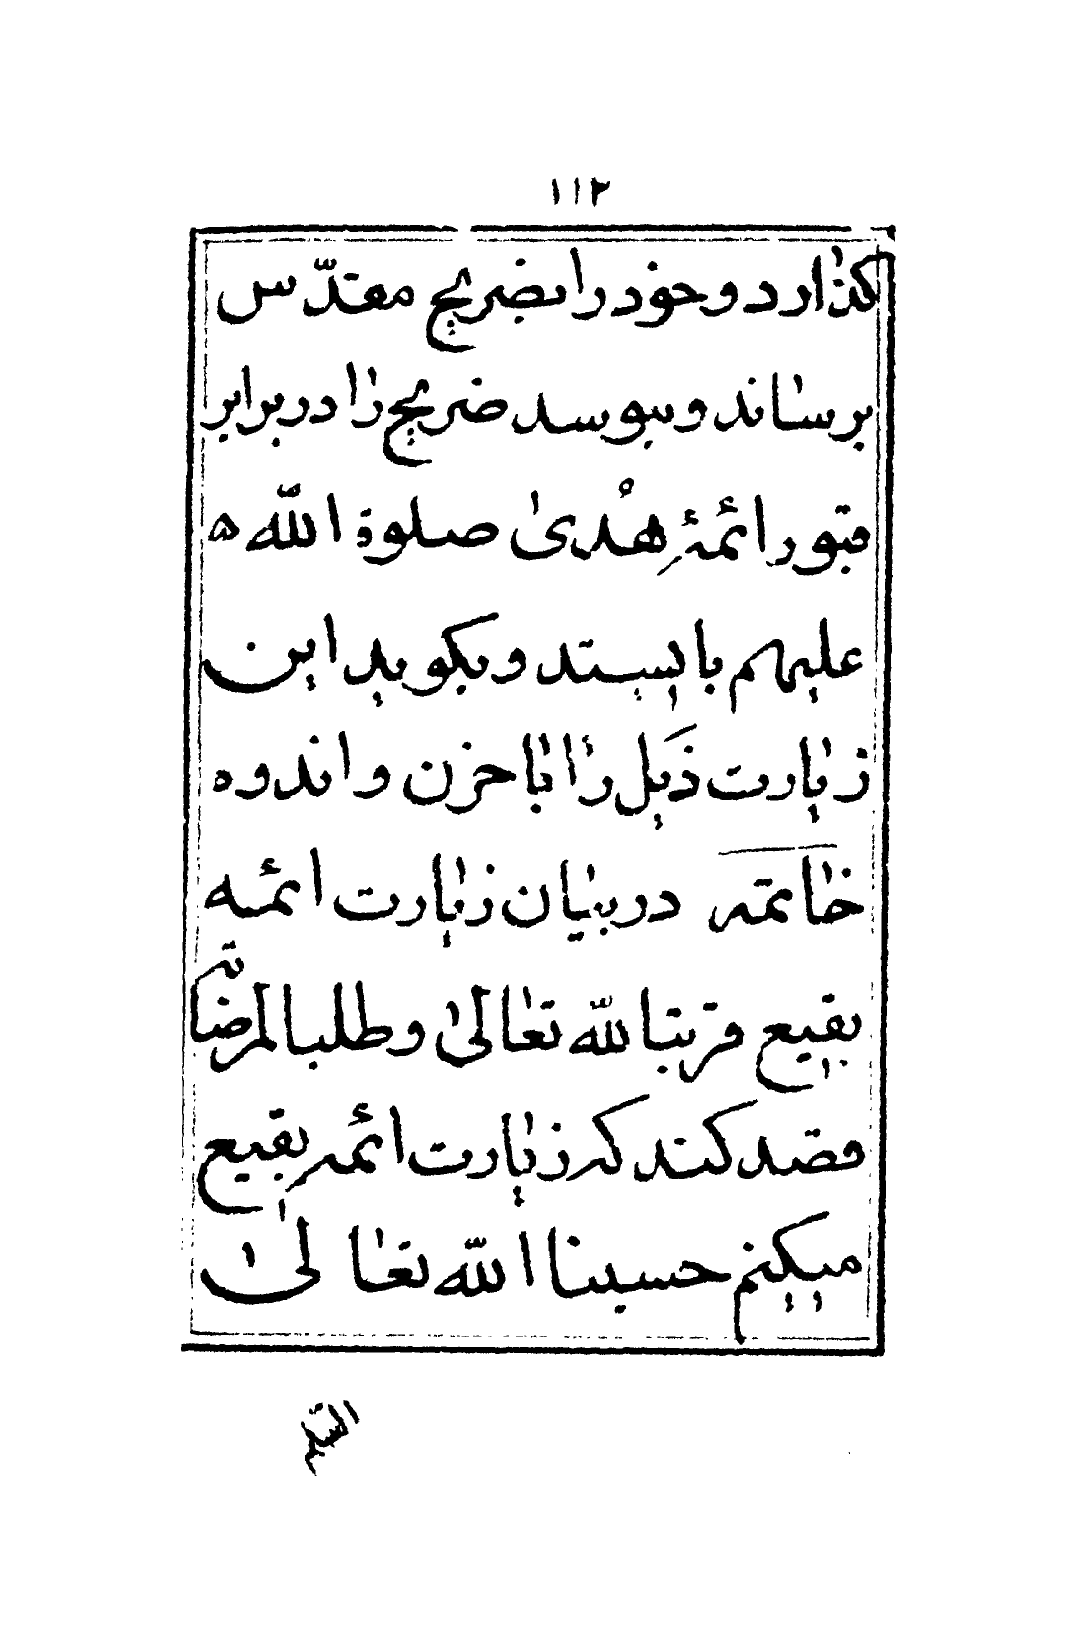 ١١٢
كذارد و خود را بضريح مقدّس
برساند و ببوسد ضريح را در برابر
قبور ائمۀ هُدىٰ صلوة اللّه ه
عليهم بايستد و بكويد اين
زيارت ذيل را با حزن و اندوه
خاتمه در بيان زيارت ائمه
بقيع قربتا لله تعالىٰ و طلبا لمرضاته
قصد كند كه زيارت ائمه بقيع
ميكنم حسبنا اللّه تعالىٰ
السّلم